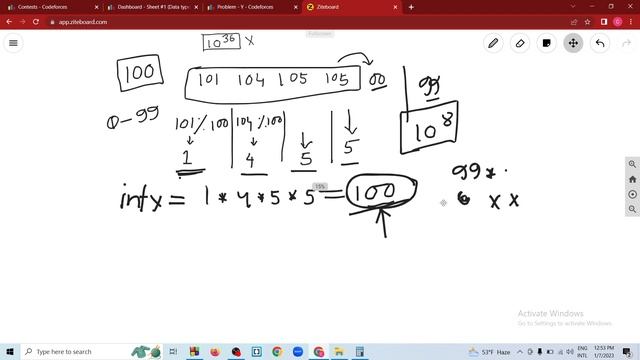 Contests - Codeforces
Dashboard - Sheet #1 (Data typ
Problem - Y - Codeforces
Ziteboard
app.ziteboard.com
10^36 X
Fullscreen
100
101 104 105 105 00
99
10^8
0-99
101%100 104%100
1 4 5 5
int x = 1 * 4 * 5 * 5 = 100
155
99 * .
x x
Activate Windows
Go to Settings to activate Windows.
Type here to search
53°F Haze
ENG
INTL
12:53 PM
1/7/2023